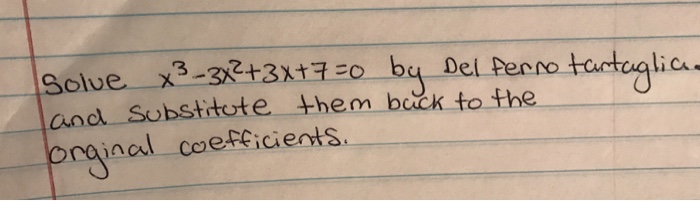 Solve x³-3x²+3x+7=0 by Del ferro tartaglia.
and substitute them back to the
orginal coefficients.